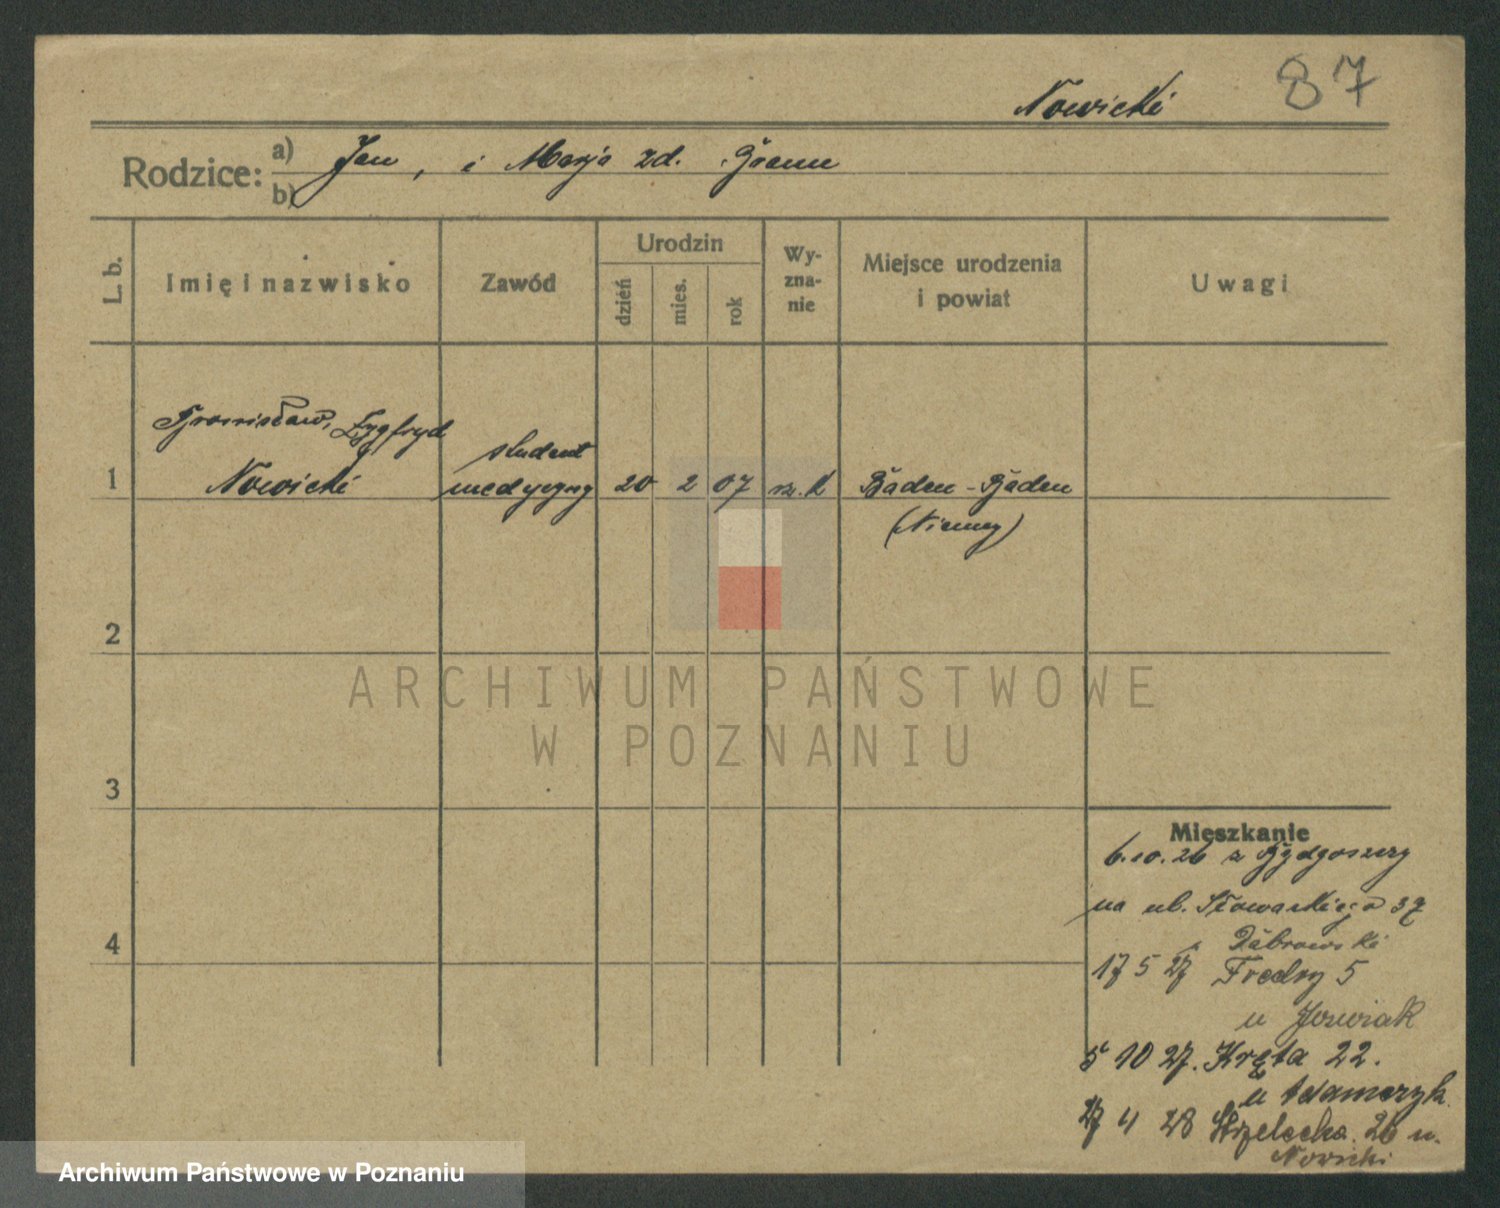 Nowicki 87
Rodzice: a) Jan, i Marja zd.
b)
L. b.
Imię i nazwisko
Zawód
Urodzin
dzień
mies.
rok
Wy-
zna-
nie
Miejsce urodzenia
i powiat
Uwagi
Bronisław, Zygfryd
Nowicki
student
medycyny
1 20 2 07 rz. k Baden-Baden
(Niemcy)
2
3
4
Mieszkanie
6.10.26 z Bydgoszczy
na ul. Słowackiego 37
Dąbrowski
17 5 27 Fredry 5
u Jóźwiak
5 10 27. Kręta 22.
u Adamczyk
27 4 28 Strzelecka 26 u.
Nowicki
ARCHIWUM PAŃSTWOWE
W POZNANIU
Archiwum Państwowe w Poznaniu